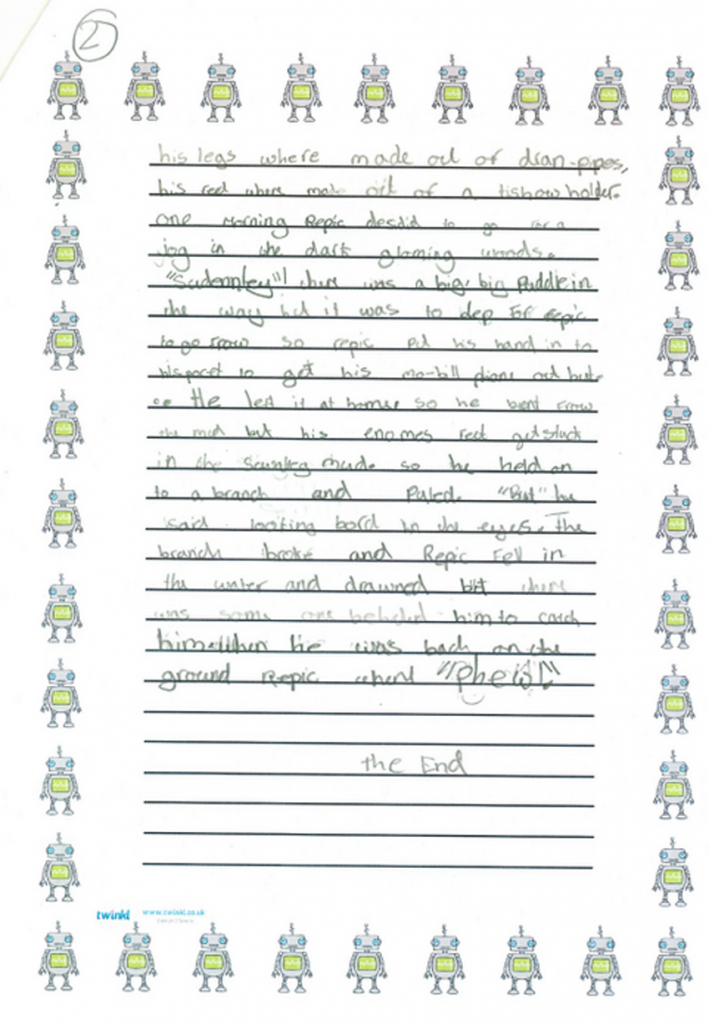 2
his legs where made out of dran-pipes,
his feet where made out of a tishow holder.
one morning Repic desdid to go for a
jog in the dark gloming woods.
"Sudennley"! there was a big, big Puddle in
the way but it was to dep for repic
to go frow so repic Put his hand in to
his pocet to get his mo-bill phone out but
He left it at home so he went frow
the mud but his enomes feet get stuck
in the mude so he held on
to a branch and Puled. "But" he
said looking bord in the eyes. The
branch broke and Repic Fell in
the water and drawned but there
was some one behded him to catch
him. When he was back on the
ground Repic whent "Phew!"
the End
twinkl www.twinkl.co.uk